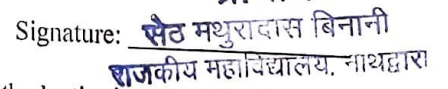 Signature: सेठ मथुरादास बिनानी
राजकीय महाविद्यालय, नाथद्वारा